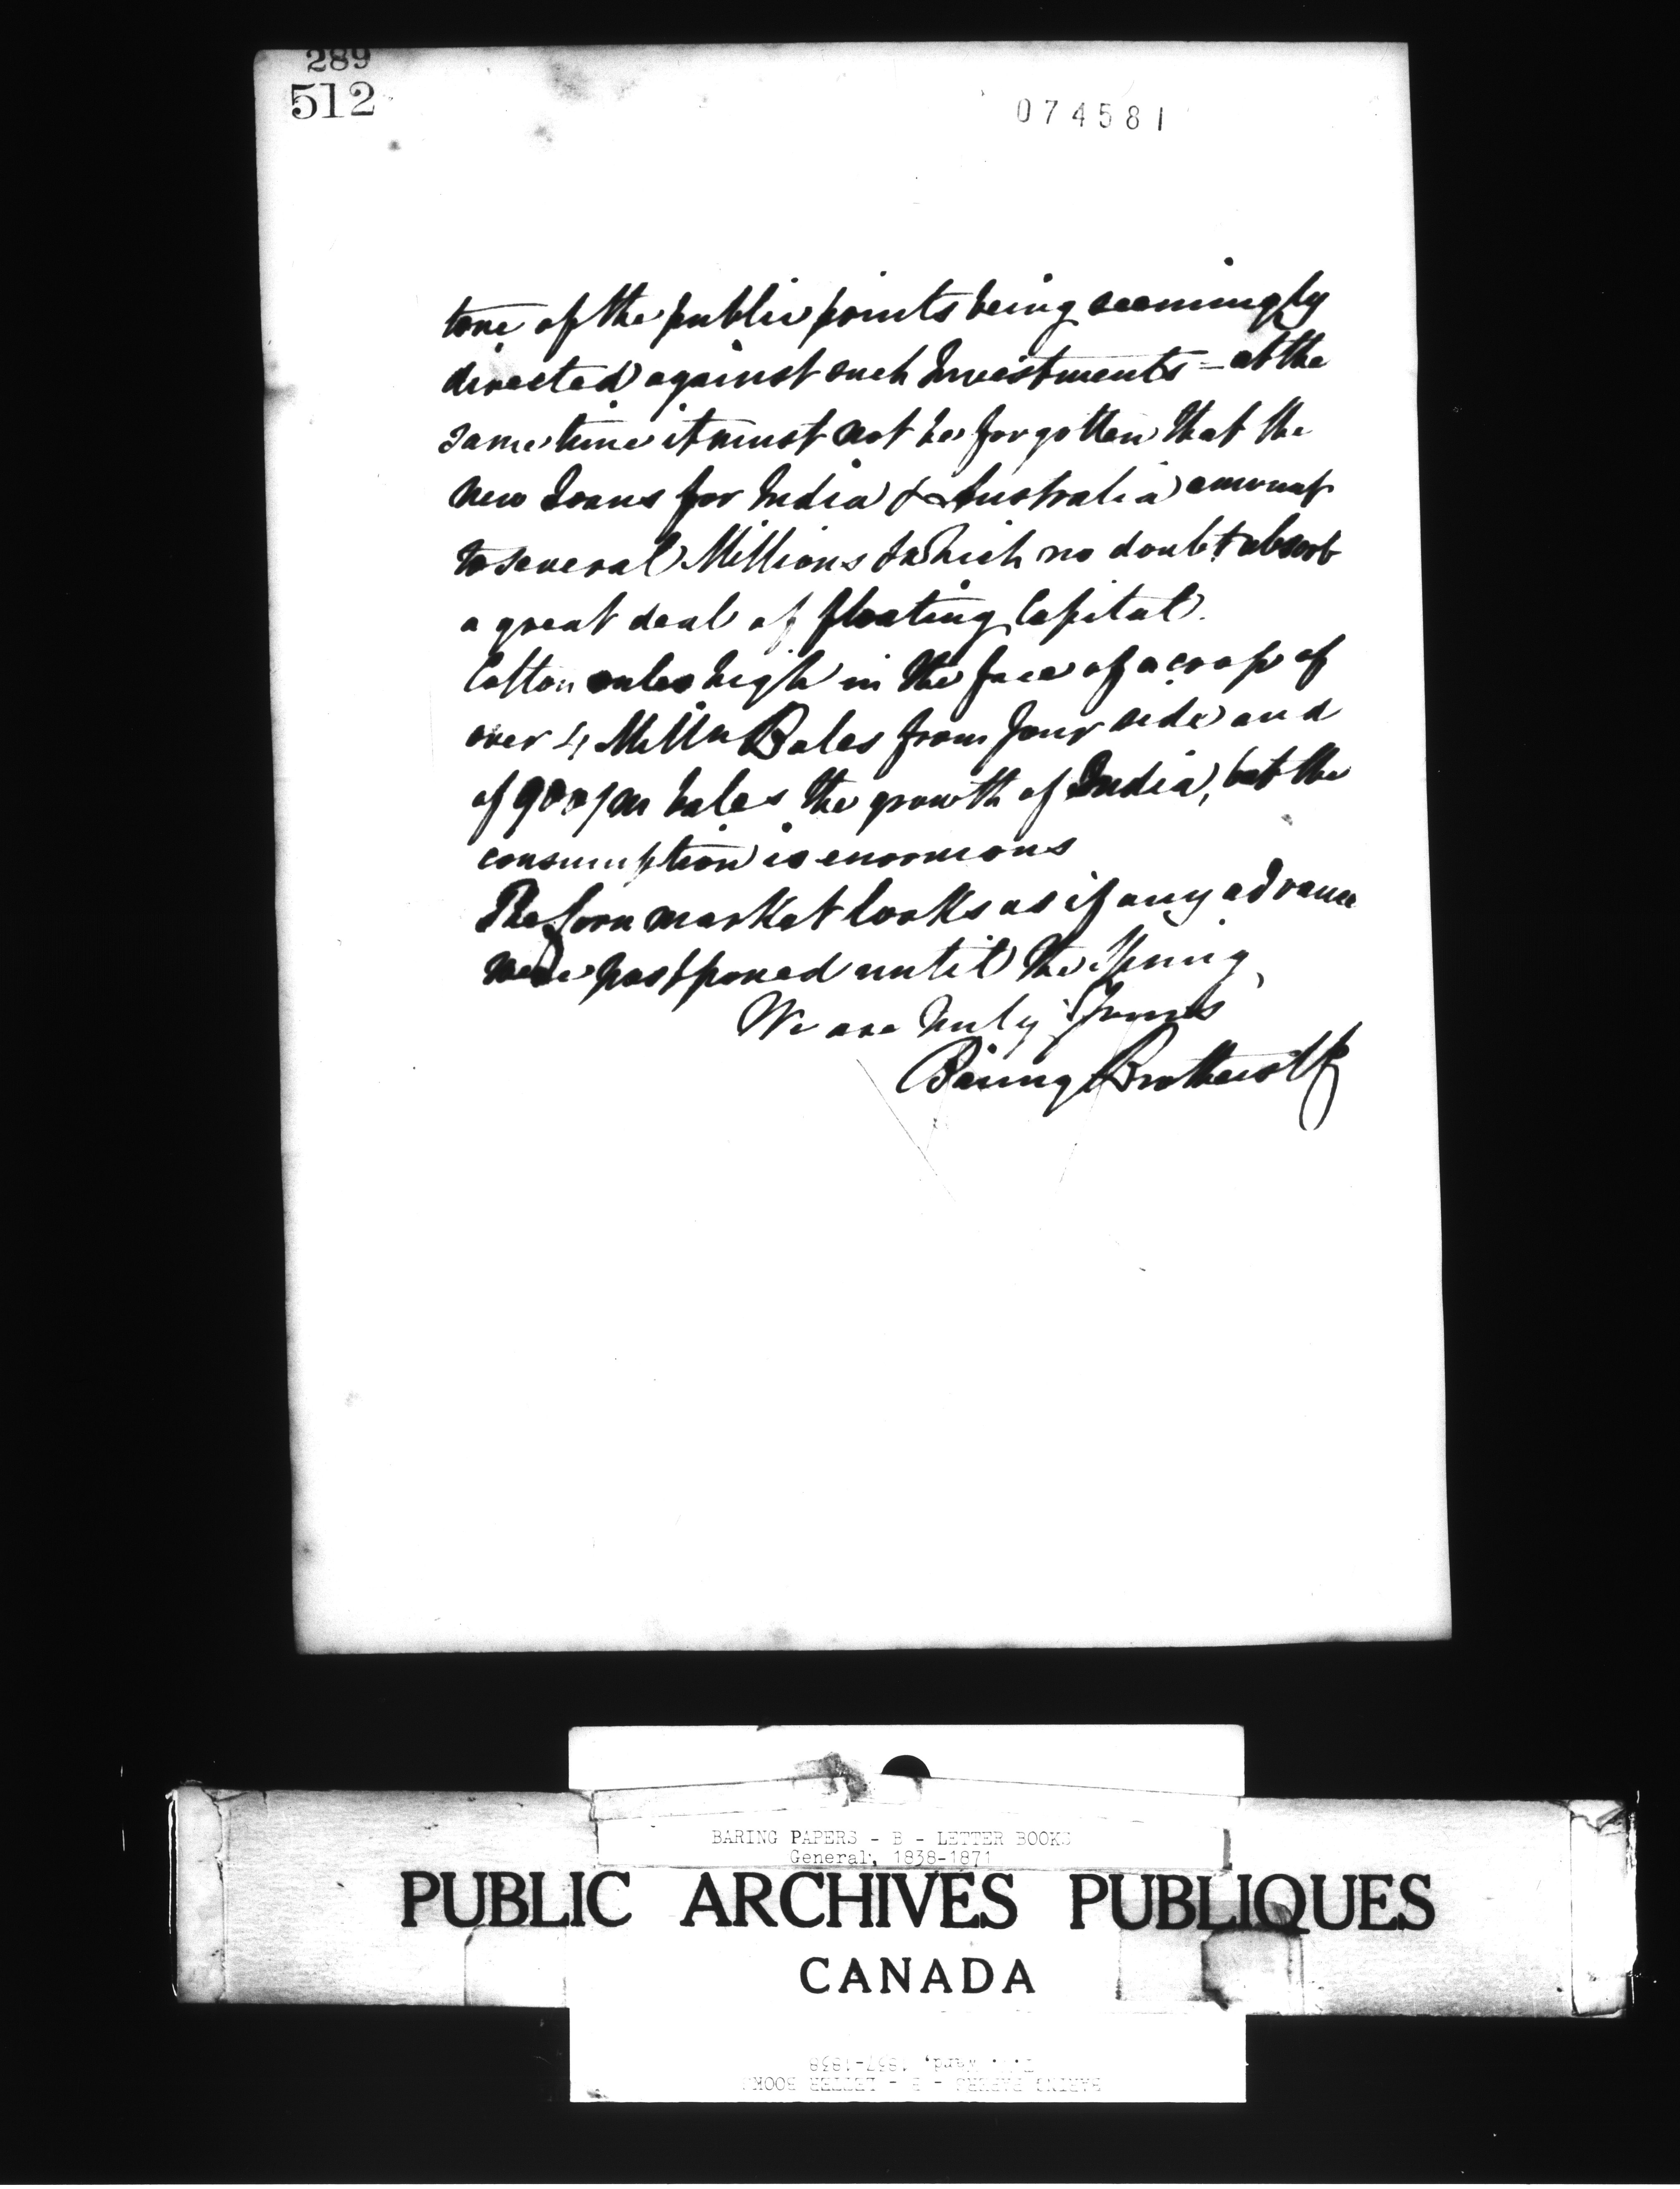 289
512
074581
tone of the public points being seemingly
directed against such Investments – at the
same time it must not be forgotten that the
new Loans for India & Australia amount
to several Millions & which no doubt absorb
a great deal of floating Capital.
Cotton rules high in the face of a crop of
over 4 Millⁿ Bales from your side and
of 900/m bales the growth of India, but the
consumption is enormous
The Corn market looks as if any advance
were postponed until the Spring,
We are truly Yours
Baring Brothers & Co
BARING PAPERS - B - LETTER BOOKS
General, 1838-1871
PUBLIC ARCHIVES PUBLIQUES
CANADA
Ward, 1837-1838
BARING PAPERS - B - LETTER BOOKS